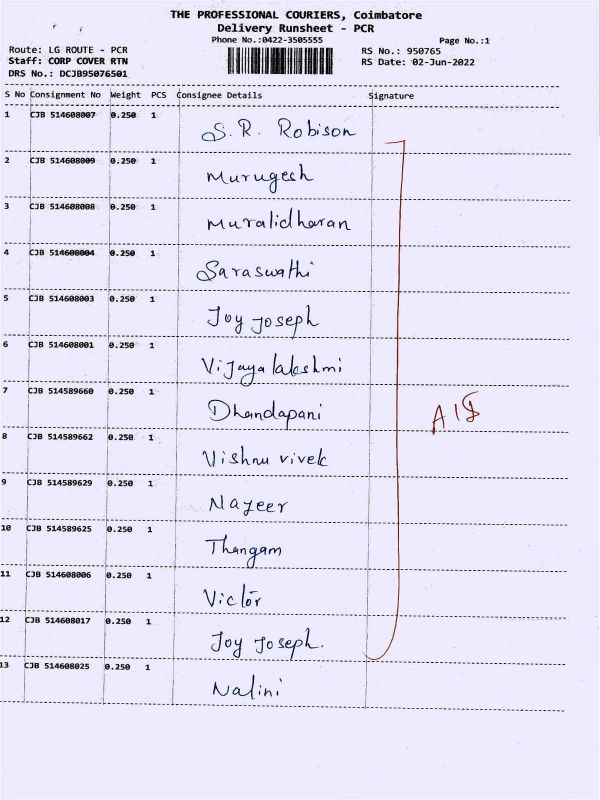 THE PROFESSIONAL COURIERS, Coimbatore
Delivery Runsheet - PCR
Phone No.:0422-3505555
Page No.:1
Route: LG ROUTE - PCR
RS No.: 950765
Staff: CORP COVER RTN
RS Date: 02-Jun-2022
DRS No.: DCJB95076501
S No Consignment No Weight PCS Consignee Details Signature
1 CJB 514608007 0.250 1 S.R. Robison
2 CJB 514608009 0.250 1 Murugesh
3 CJB 514608008 0.250 1 Muralidharan
4 CJB 514608004 0.250 1 Saraswathi
5 CJB 514608003 0.250 1 Joy Joseph
6 CJB 514608001 0.250 1 Vijayalakshmi
7 CJB 514589660 0.250 1 Dhandapani
8 CJB 514589662 0.250 1 Vishnu vivek
9 CJB 514589629 0.250 1 Nazeer
10 CJB 514589625 0.250 1 Thangam
11 CJB 514608006 0.250 1 Victor
12 CJB 514608017 0.250 1 Joy Joseph.
13 CJB 514608025 0.250 1 Nalini